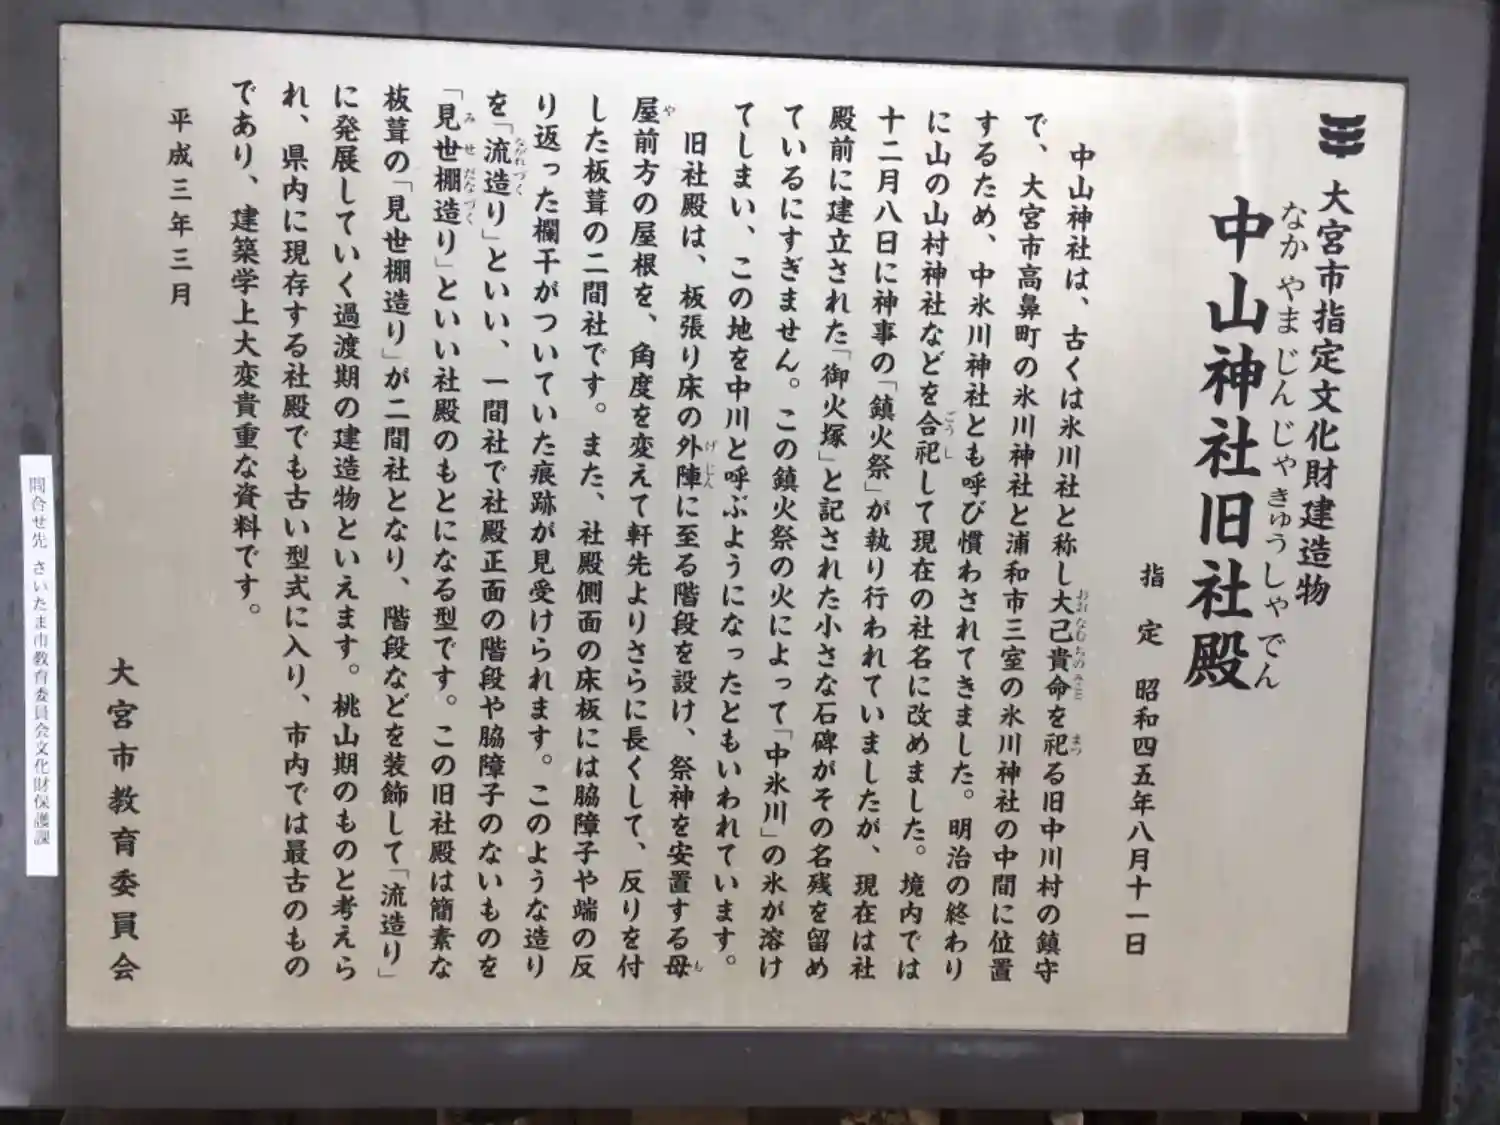 大宮市指定文化財建造物
なかやまじんじゃきゅうしゃでん
中山神社旧社殿
指定 昭和四五年八月十一日
中山神社は、古くは氷川社と称し大己貴命を祀る旧中川村の鎮守
おおなむちのみこと まつ
で、大宮市高鼻町の氷川神社と浦和市三室の氷川神社の中間に位置
するため、中氷川神社とも呼び慣わされてきました。明治の終わり
に山の山村神社などを合祀して現在の社名に改めました。境内では
ごうし
十二月八日に神事の「鎮火祭」が執り行われていましたが、現在は社
殿前に建立された「御火塚」と記された小さな石碑がその名残を留め
ているにすぎません。この鎮火祭の火によって「中氷川」の氷が溶け
てしまい、この地を中川と呼ぶようになったともいわれています。
旧社殿は、板張り床の外陣に至る階段を設け、祭神を安置する母
げじん も
屋前方の屋根を、角度を変えて軒先よりさらに長くして、反りを付
や
した板葺の二間社です。また、社殿側面の床板には脇障子や端の反
り返った欄干がついていた痕跡が見受けられます。このような造り
を「流造り」といい、一間社で社殿正面の階段や脇障子のないものを
ながれづく
「見世棚造り」といい社殿のもとになる型です。この旧社殿は簡素な
みせだなづく
板葺の「見世棚造り」が二間社となり、階段などを装飾して「流造り」
に発展していく過渡期の建造物といえます。桃山期のものと考えら
れ、県内に現存する社殿でも古い型式に入り、市内では最古のもの
であり、建築学上大変貴重な資料です。
平成三年三月
大宮市教育委員会
問合せ先 さいたま市教育委員会文化財保護課